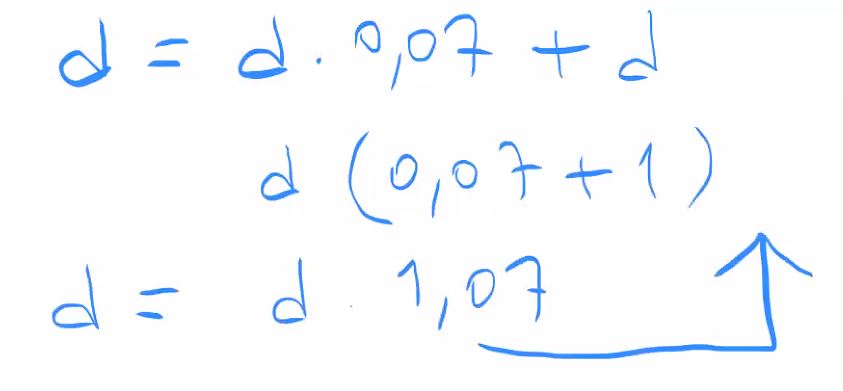 d = d · 0,07 + d
d (0,07 + 1)
d = d · 1,07